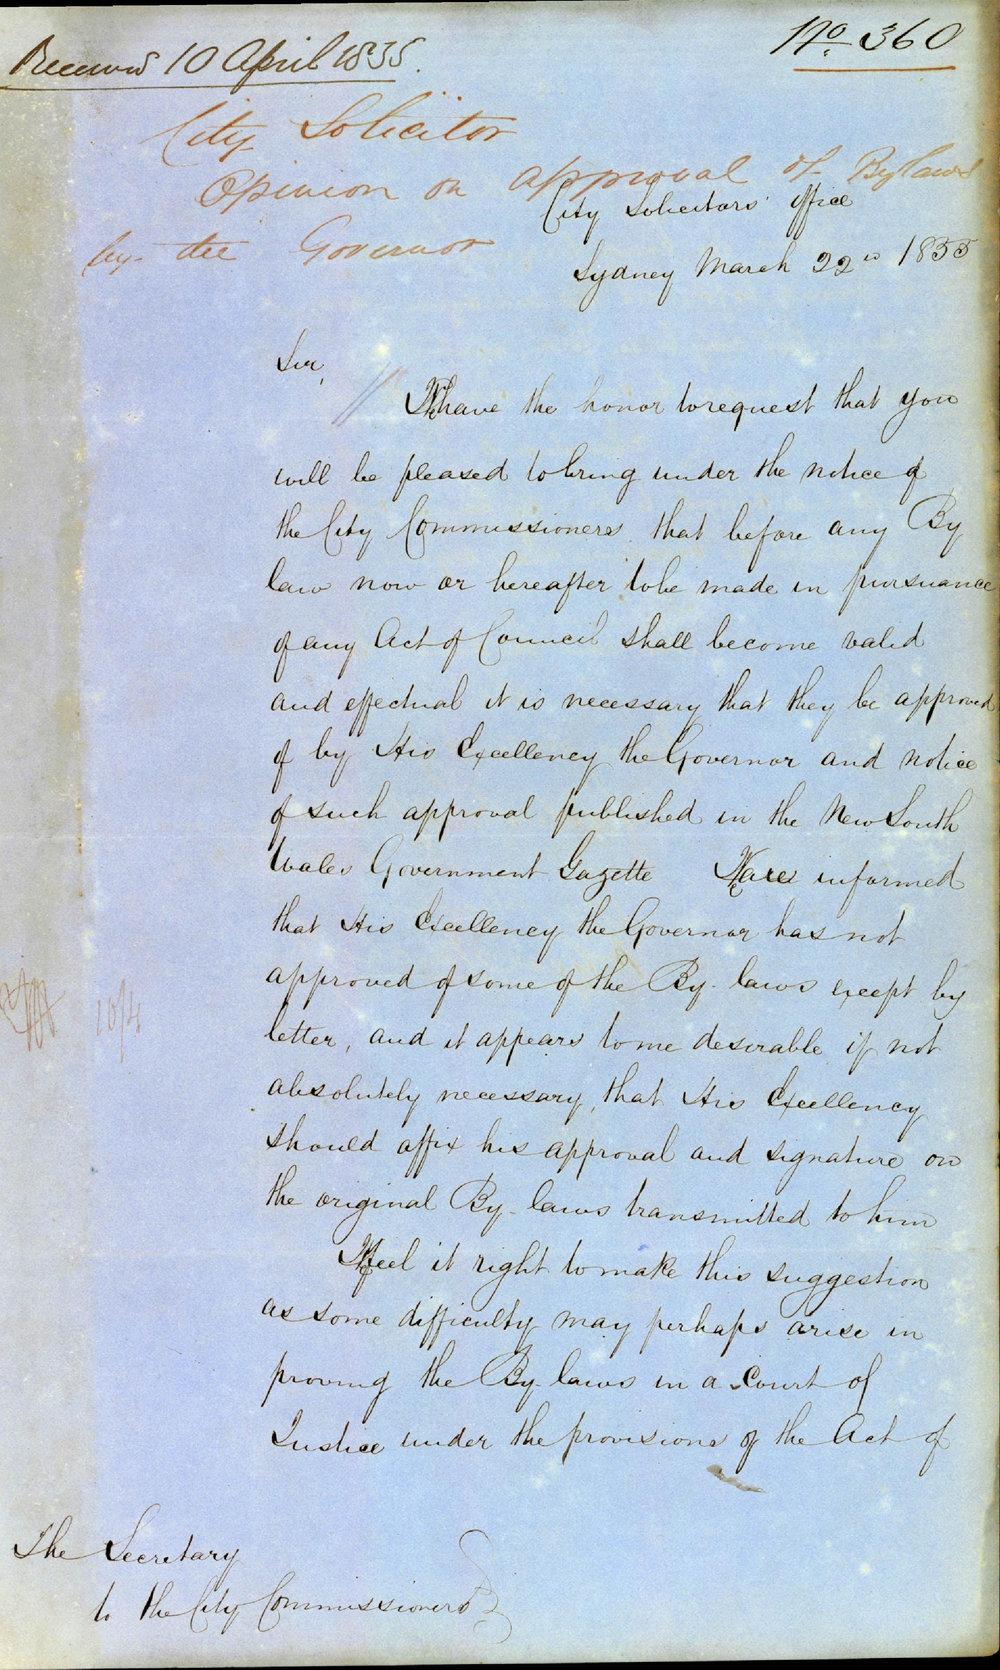 Received 10 April 1855.
No. 360
City Solicitor
Opinion on approval of Bylaws
by the Governor
City Solicitors' Office
Sydney March 22nd 1855
Sir,
We have the honor to request that you
will be pleased to bring under the notice of
the City Commissioners that before any By
law now or hereafter to be made in pursuance
of any Act of Council shall become valid
and effectual it is necessary that they be approved
of by His Excellency the Governor and notice
of such approval published in the New South
Wales Government Gazette We are informed
that His Excellency the Governor has not
approved of some of the By-laws except by
letter, and it appears to me desirable if not
absolutely necessary, that His Excellency
should affix his approval and signature on
the original By-laws transmitted to him
We feel it right to make this suggestion
as some difficulty may perhaps arise in
proving the By-laws in a Court of
Justice under the provisions of the Act of
10/4
The Secretary
to the City Commissioners